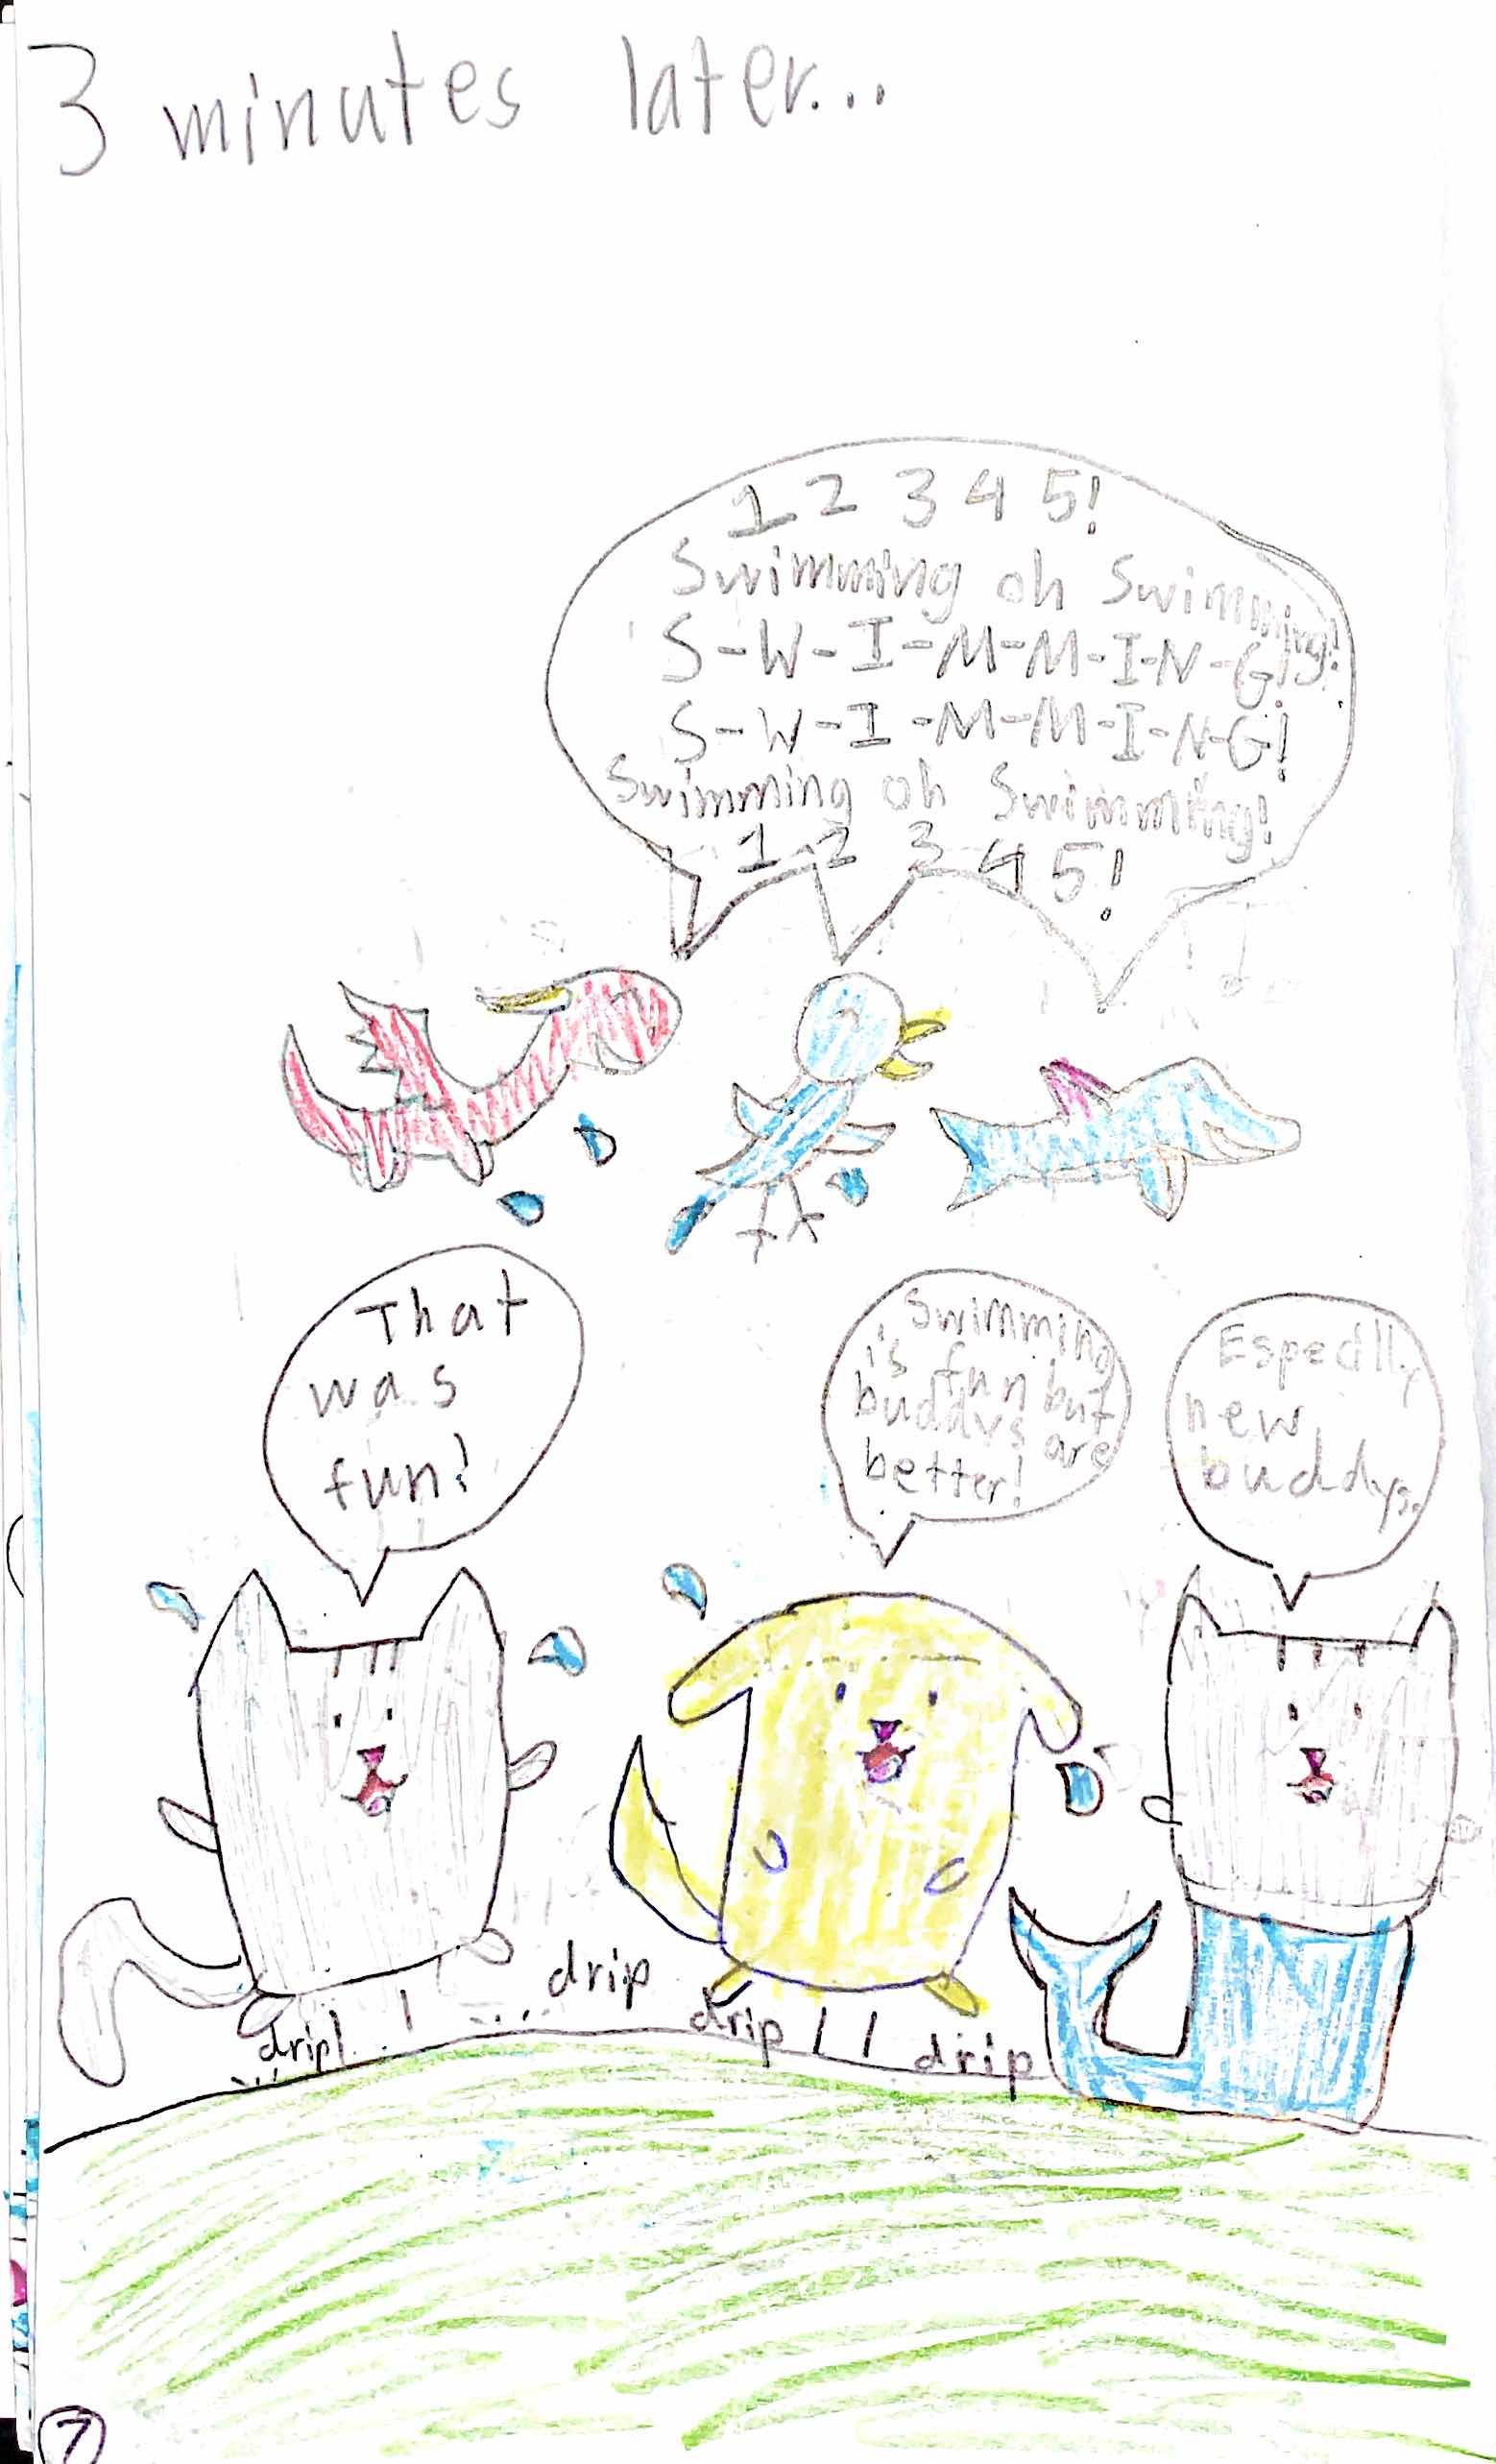 3 minutes later...
1 2 3 4 5!
Swimming oh Swimming!
S-W-I-M-M-I-N-G!
S-W-I-M-M-I-N-G!
Swimming oh Swimming!
1 2 3 4 5!
That
was
fun!
Swimming
is fun but
buddys are
better!
Especilly
new
buddys.
drip
drip
drip
drip
7